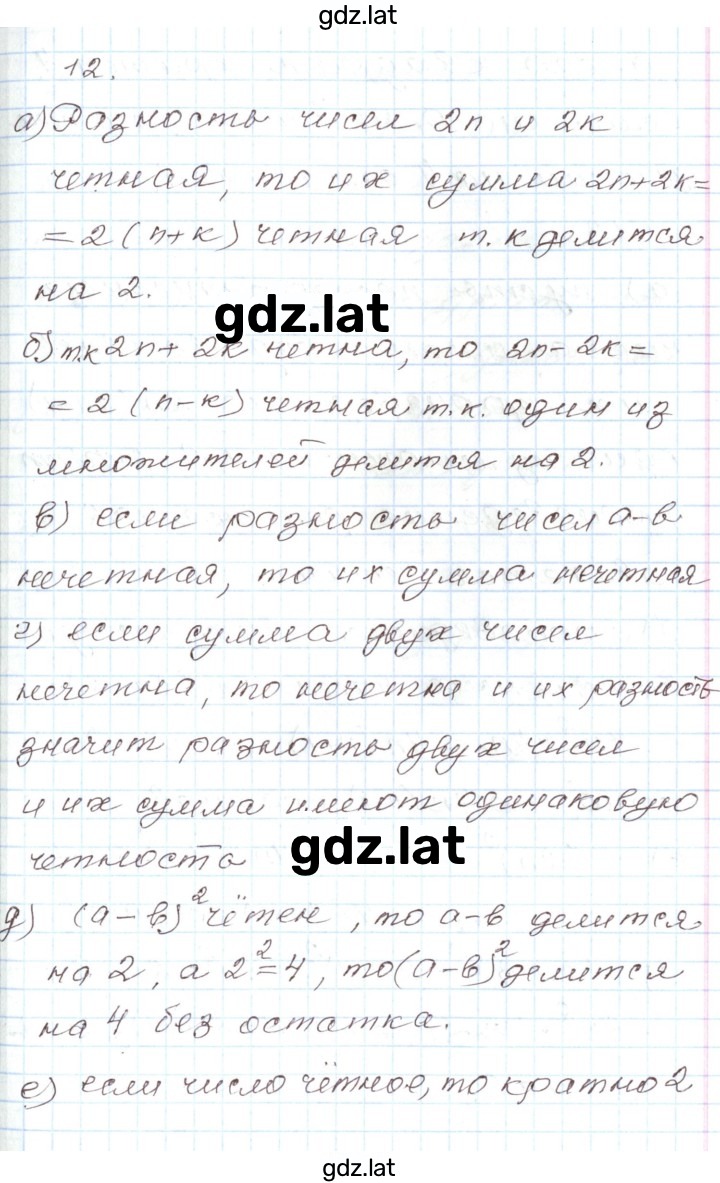 gdz.lat
12.
а) Разность чисел 2n и 2к
четная, то их сумма 2n+2к=
=2(n+к) четная т.к делится
на 2.
gdz.lat
б) т.к 2n+ 2к четна, то 2n-2к=
= 2 (n-к) четная т.к. один из
множителей делится на 2.
в) если разность чисел а-в
нечетная, то их сумма нечетная
г) если сумма двух чисел
нечетна, то нечетна и их разность
значит разность двух чисел
и их сумма имеют одинаковую
gdz.lat
четность
д) (а-в)² чётен, то а-в делится
на 2, а 2²=4, то (а-в)² делится
на 4 без остатка.
е) если число чётное, то кратно 2
gdz.lat